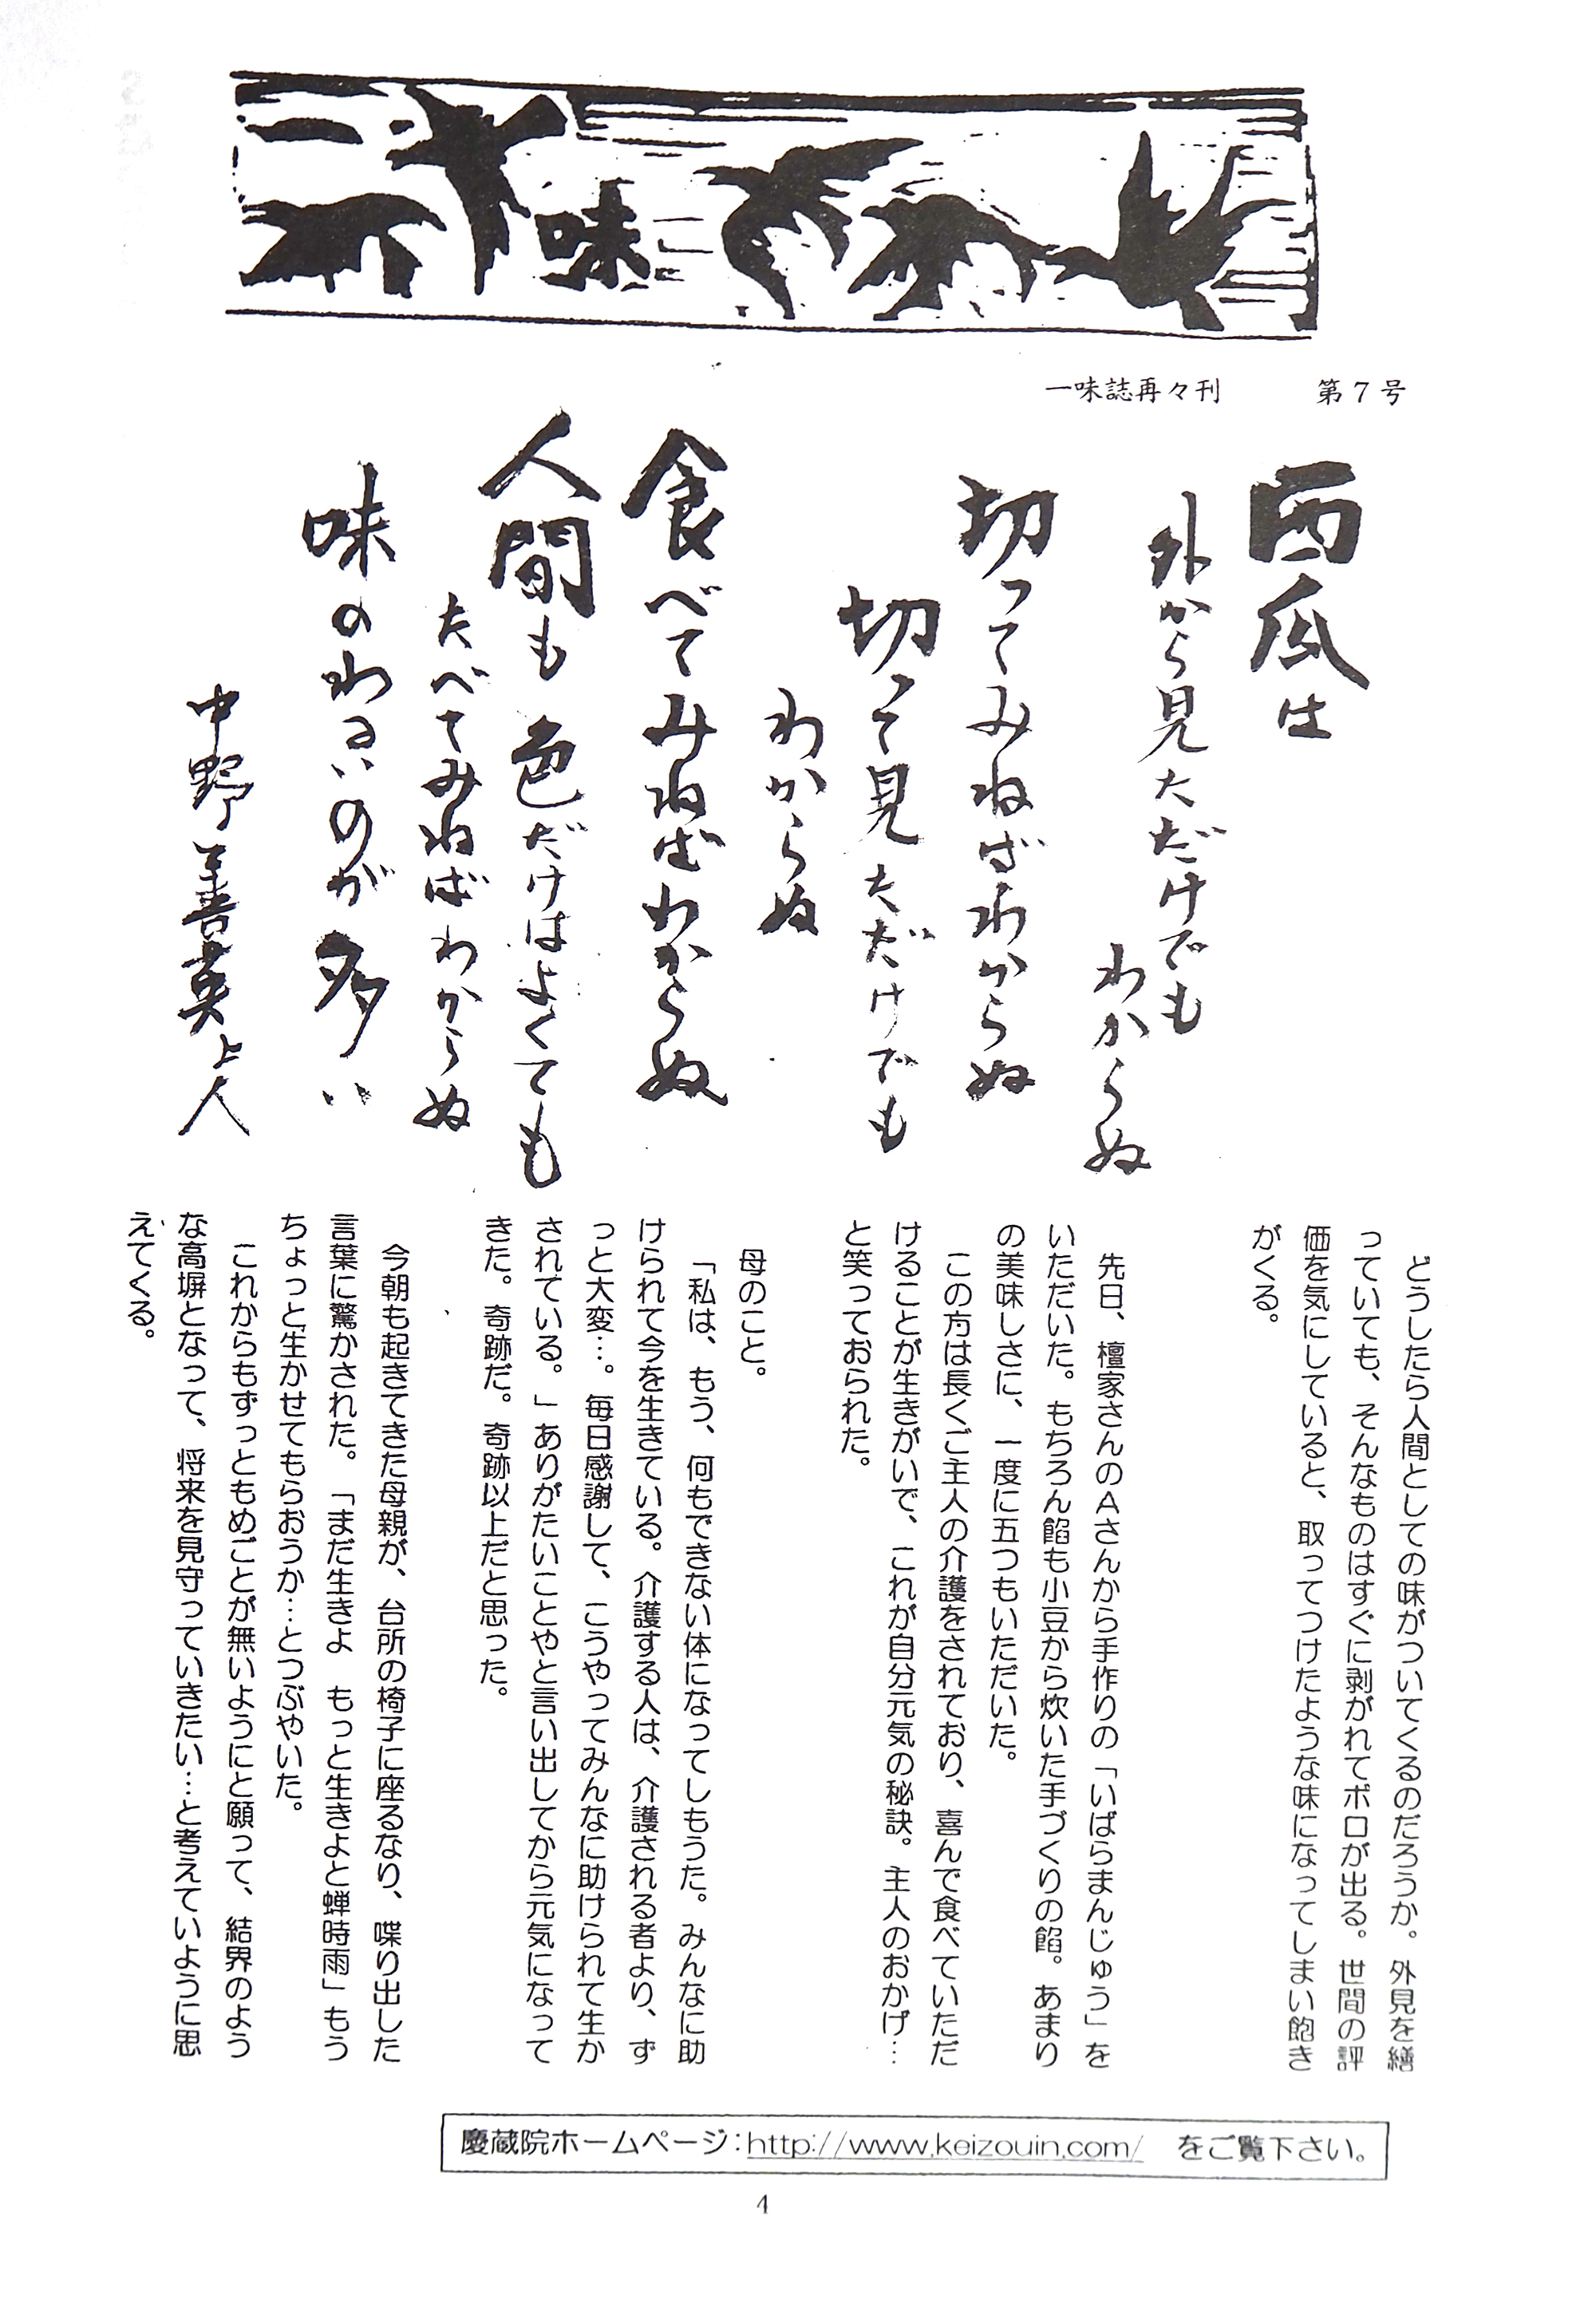 味
一味誌再々刊　第７号
西瓜は
外から見ただけでも
わからぬ
切ってみねばわからぬ
切って見ただけでも
わからぬ
食べてみねばわからぬ
人間も色だけはよくても
たべてみねばわからぬ
味のわるいのが多い
中野善英上人
どうしたら人間としての味がついてくるのだろうか。外見を繕
っていても、そんなものはすぐに剥がれてボロが出る。世間の評
価を気にしていると、取ってつけたような味になってしまい飽き
がくる。
先日、檀家さんのＡさんから手作りの「いばらまんじゅう」を
いただいた。もちろん餡も小豆から炊いた手づくりの餡。あまり
の美味しさに、一度に五つもいただいた。
この方は長くご主人の介護をされており、喜んで食べていただ
けることが生きがいで、これが自分元気の秘訣。主人のおかげ…
と笑っておられた。
母のこと。
「私は、もう、何もできない体になってしもうた。みんなに助
けられて今を生きている。介護する人は、介護される者より、ず
っと大変…。毎日感謝して、こうやってみんなに助けられて生か
されている。」ありがたいことやと言い出してから元気になって
きた。奇跡だ。奇跡以上だと思った。
今朝も起きてきた母親が、台所の椅子に座るなり、喋り出した
言葉に驚かされた。「まだ生きよ　もっと生きよと蝉時雨」もう
ちょっと生かせてもらおうか…とつぶやいた。
これからもずっともめごとが無いようにと願って、結界のよう
な高塀となって、将来を見守っていきたい…と考えていように思
えてくる。
慶蔵院ホームページ：http://www.keizouin.com/　をご覧下さい。
4